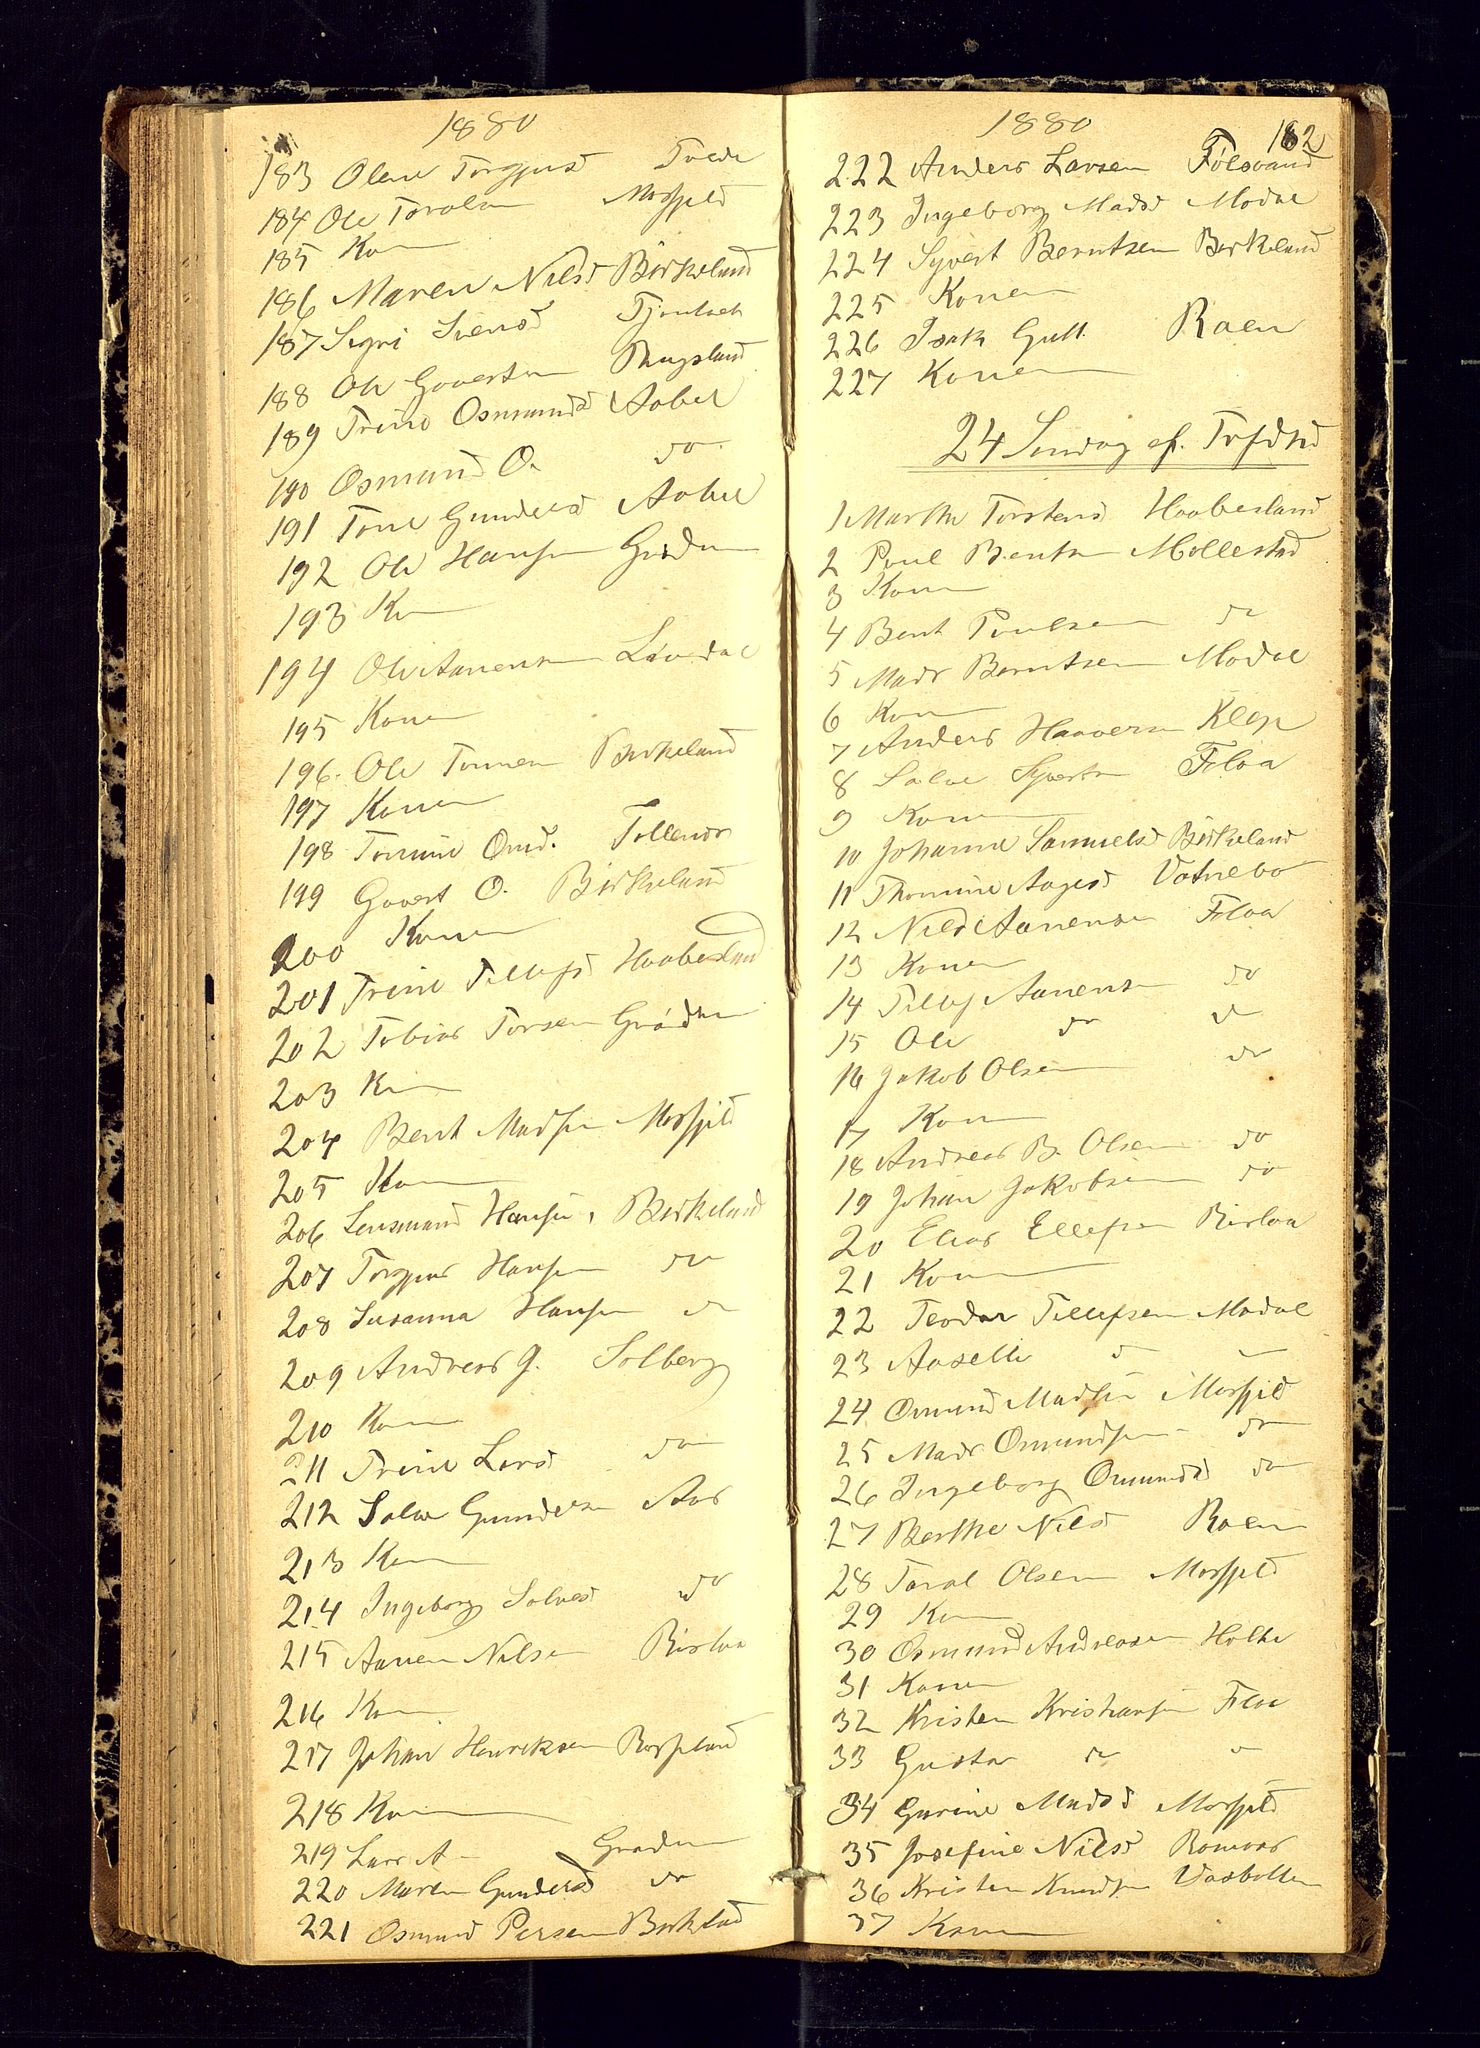 1880
183 Olene Torgjusd Tvede
184 Ole Toralsen Mosfjeld
185 Kon
186 Maren Nilsd Birkeland
187 Sigri Svensd
188 Ole Govertsen Rugsland
189 Trine Osmundsd Aabel
190 Osmund O. do
191 Tone Gundersd Aabel
192 Ole Hansen Grødum
193 Kon
194 Ole Aanensen Løvdal
195 Konen
196. Ole Tonnesen Birkeland
197 Konen
198 Tomine Omd. Tollenes
199 Govert O. Birkeland
200 Konen
201 Trine Tellefsd Haabesland
202 Tobias Torsen Grødum
203 Kon
204 Bent Madsen Mosfjeld
205 Kon
206 Lensmand Hansen, Birkeland
207 Torgjus Hansen do
208 Susanna Hansen do
209 Andreas J. Solberg
210 Kon
211 Trine Larsd do
212 Salve Gundersen Aas
213 Kon
214 Ingeborg Salvesd do
215 Aanen Nilsen Risløa
216 Kon
217 Johan Henriksen Rosseland
218 Kon
219 Lars A Grødum
220 Marthe Gundersd do
221 Osmund Persen Birkeland
1880 182
222 Anders Larsen Følsvand
223 Ingeborg Madsd Modal
224 Syvert Berntsen Birkeland
225 Konen
226 Isak Gull Raen
227 Konen
24 Søndag ef. Trefdhd
1 Marthe Torstensd Haabesland
2 Poul Bentsen Mollestad
3 Kon
4 Bent Poulsen do
5 Mads Berntsen Modal
6 Kon
7 Anders Haaversen Klep
8 Salve Syvertsen Floa
9 Kon
10 Johanne Samuelsd Birkeland
11 Thomine Aagesd Vatnebo
12 Nils Aanensen Floa
13 Konen
14 Tellef Aanensen do
15 Ole do do
16 Jakob Olsen do
17 Kon
18 Andreas B. Olsen do
19 Johan Jakobsen do
20 Elias Ellefsen Risløa
21 Kon
22 Teodor Tellefsen Modal
23 Aaselle do do
24 Omund Madsen Mosfjeld
25 Mads Omundsen do
26 Ingeborg Omundsd do
27 Berthe Nilsd Raen
28 Taral Olsen Mosfjeld
29 Kon
30 Osmund Andreasen Holte
31 Konen
32 Kristen Kristiansen Floa
33 Gustav do do
34 Gurine Madsd Mosfjeld
35 Josefine Nilsd
36 Kristen Knudsen Vasbotten
37 Konen